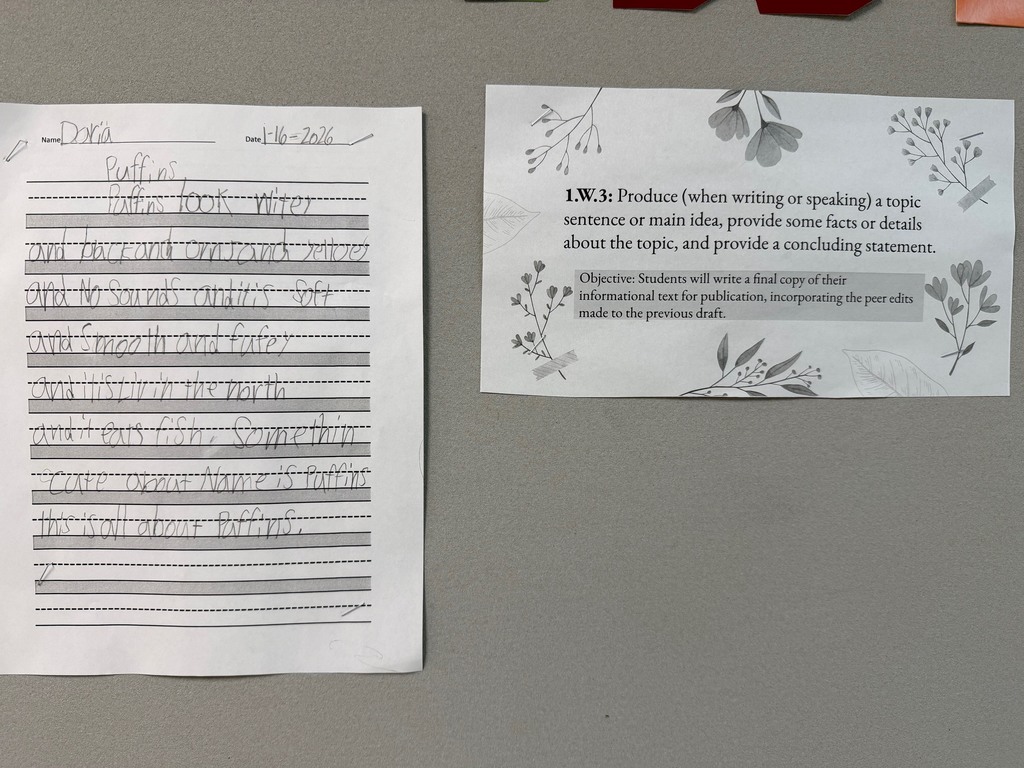 Name Daria Date 1-16-2026
Puffins
Puffins look witey
and back and ornj and yellow
and No Sounds and it is Soft
and Smooth and futey
and it is Liv in the north
and it eats fish. Somethin
cute about Name is Puffins
this is all about Puffins.
1.W.3: Produce (when writing or speaking) a topic
sentence or main idea, provide some facts or details
about the topic, and provide a concluding statement.
Objective: Students will write a final copy of their
informational text for publication, incorporating the peer edits
made to the previous draft.